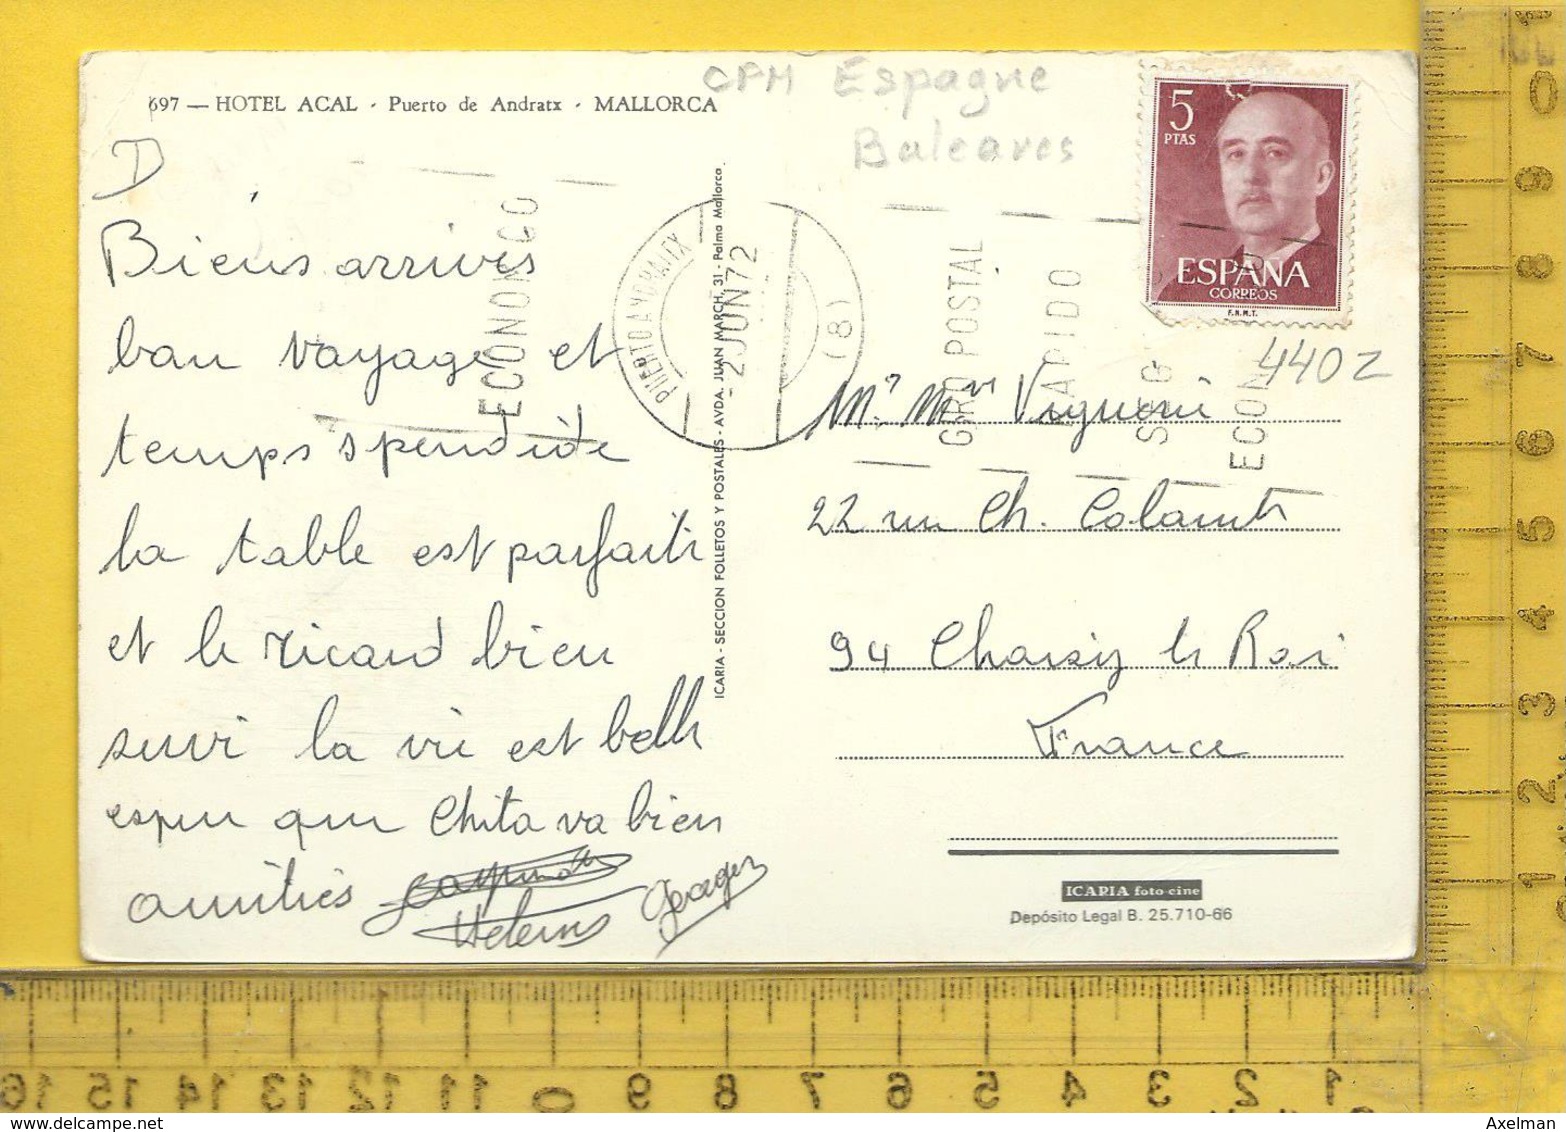 697 — HOTEL ACAL · Puerto de Andratx · MALLORCA
CPM Espagne
Baleares
D
Biens arrivés
bon voyage et
temps spendide
la table est parfaite
et le ricard bien
suivi la vie est belle
espere que Chita va bien
amitiés
Helene Georges
ICARIA - SECCION FOLLETOS Y POSTALES - AVDA. JUAN MARCH, 31 - Palma Mallorca.
ECONOMICO
PUERTO ANDRAITX
- 2 JUN 72
(8)
GIRO POSTAL
RAPIDO
ECON
5
PTAS
ESPAÑA
CORREOS
F.N.M.T.
4402
Mr Mme
22 rue Ch. Colomb
94 Choisy le Roi
France
ICARIA foto-cine
Depósito Legal B. 25.710-66
0 9 8 7 6 5 4 3 2 1
16 15 14 13 12 11 0 9 8 7 6 5 4 3 2 1
www.delcampe.net
Axelman